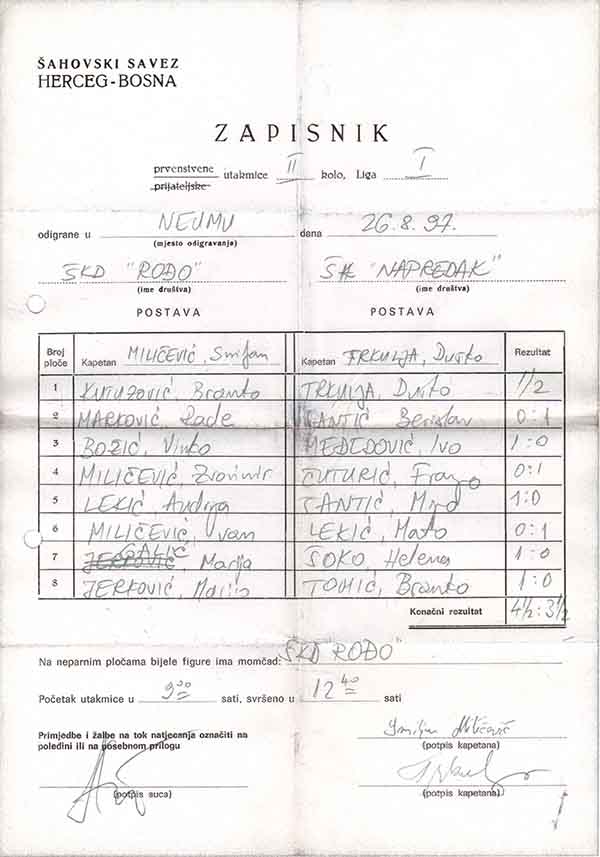 ŠAHOVSKI SAVEZ
HERCEG-BOSNA
ZAPISNIK
prvenstvene
prijateljske
utakmice II kolo, Liga I
odigrane u NEUMU dana 26.8.97.
(mjesto odigravanja)
ŠKD "ROĐO" ŠK "NAPREDAK"
(ime društva) (ime društva)
POSTAVA POSTAVA
Broj ploče Kapetan MILIČEVIĆ, Smiljan Kapetan TRKULJA, Duško Rezultat
1 KUTUZOVIĆ, Branko TRKULJA, Duško 1/2
2 MARKOVIĆ, Rade ŠANTIĆ Berislav 0:1
3 BOŽIĆ, Vinko MEĐEDOVIĆ, Ivo 1:0
4 MILIČEVIĆ, Zvonimir ČUTURIĆ, Franjo 0:1
5 LEKIĆ, Andrija ŠANTIĆ, 1:0
6 MILIČEVIĆ, Ivan LEKIĆ, Mato 0:1
7 JERKOVIĆ GALIĆ, Marija SOKO, Helena 1:0
8 JERKOVIĆ, Mario TOMIĆ, Branko 1:0
Konačni rezultat 4½:3½
Na neparnim pločama bijele figure ima momčad: ŠKD "ROĐO"
Početak utakmice u 9 00 sati, svršeno u 12 40 sati
Primjedbe i žalbe na tok natjecanja označiti na
poleđini ili na posebnom prilogu
Smiljan Miličević
(potpis kapetana)
(potpis suca) (potpis kapetana)